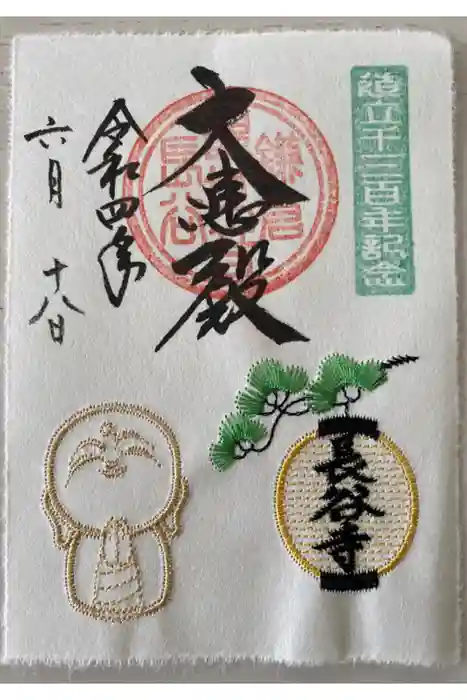 造立千三百年記念
鎌倉
長谷
大悲殿
令和四年
六月 十八日
長谷寺